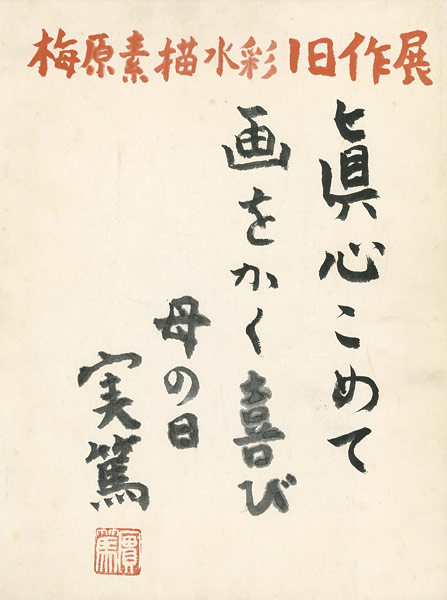 梅原素描水彩旧作展
眞心こめて
画をかく喜び
母の日
実篤
實篤